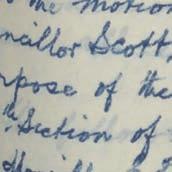 the motion
ncillor Scott,
rpose of the
th Section of